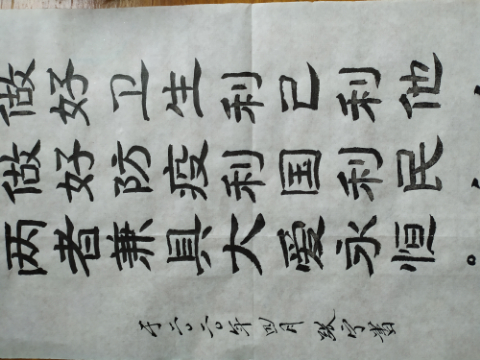 做好卫生利己利他，
做好防疫利国利民，
两者兼具大爱永恒。
于二〇二〇年四月